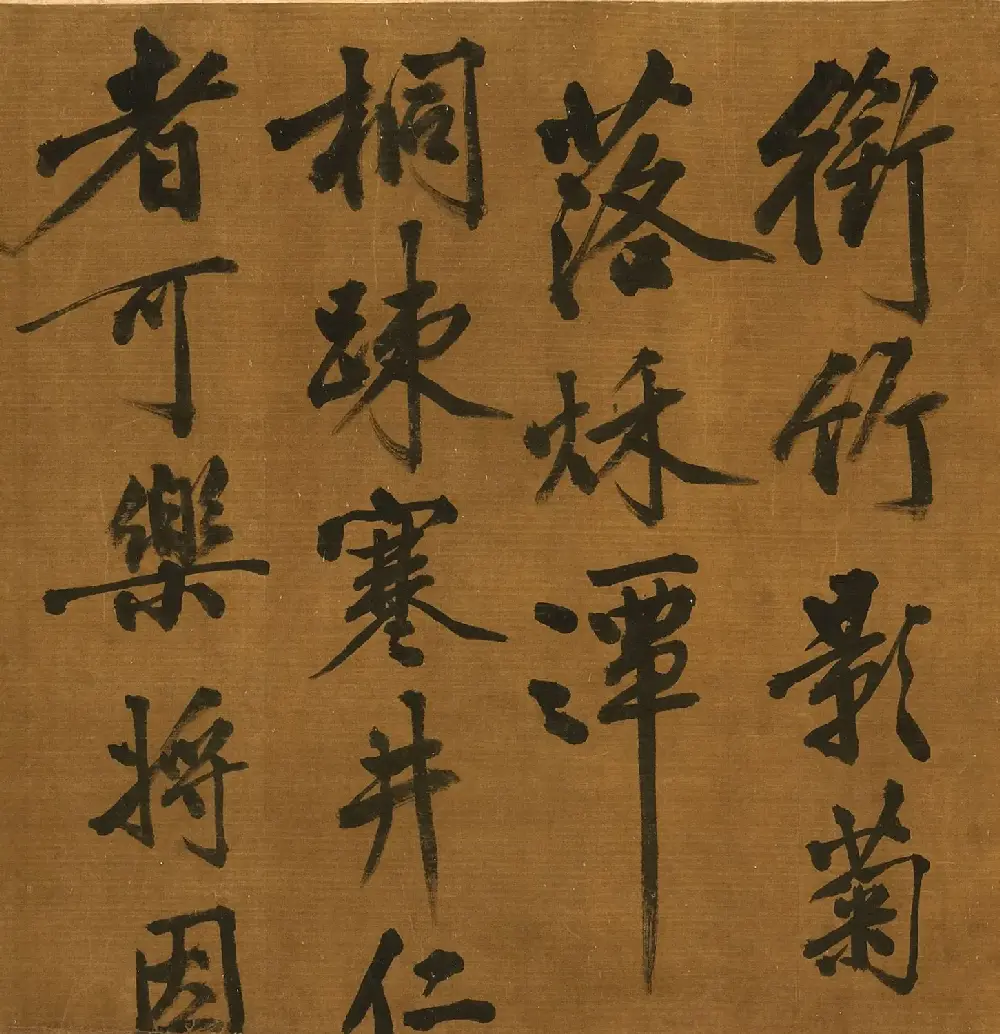 衔竹影菊
落秋潭
桐踈寒井仁
者可樂將因